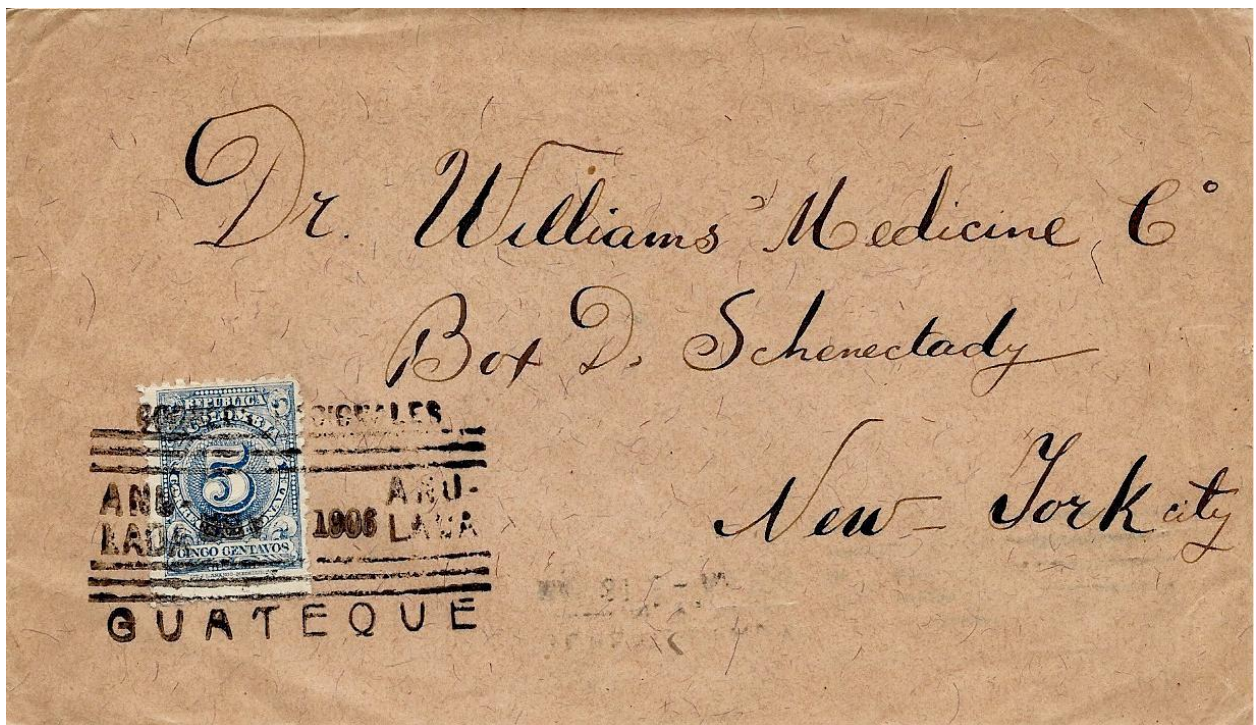 Dr. Williams' Medicine Cº
Box D. Schenectady
New-York city
REPUBLICA
COLOMBIA
5
CINCO CENTAVOS
CORREOS NACIONALES
ANU- ANU-
LADA 1906 LADA
GUATEQUE